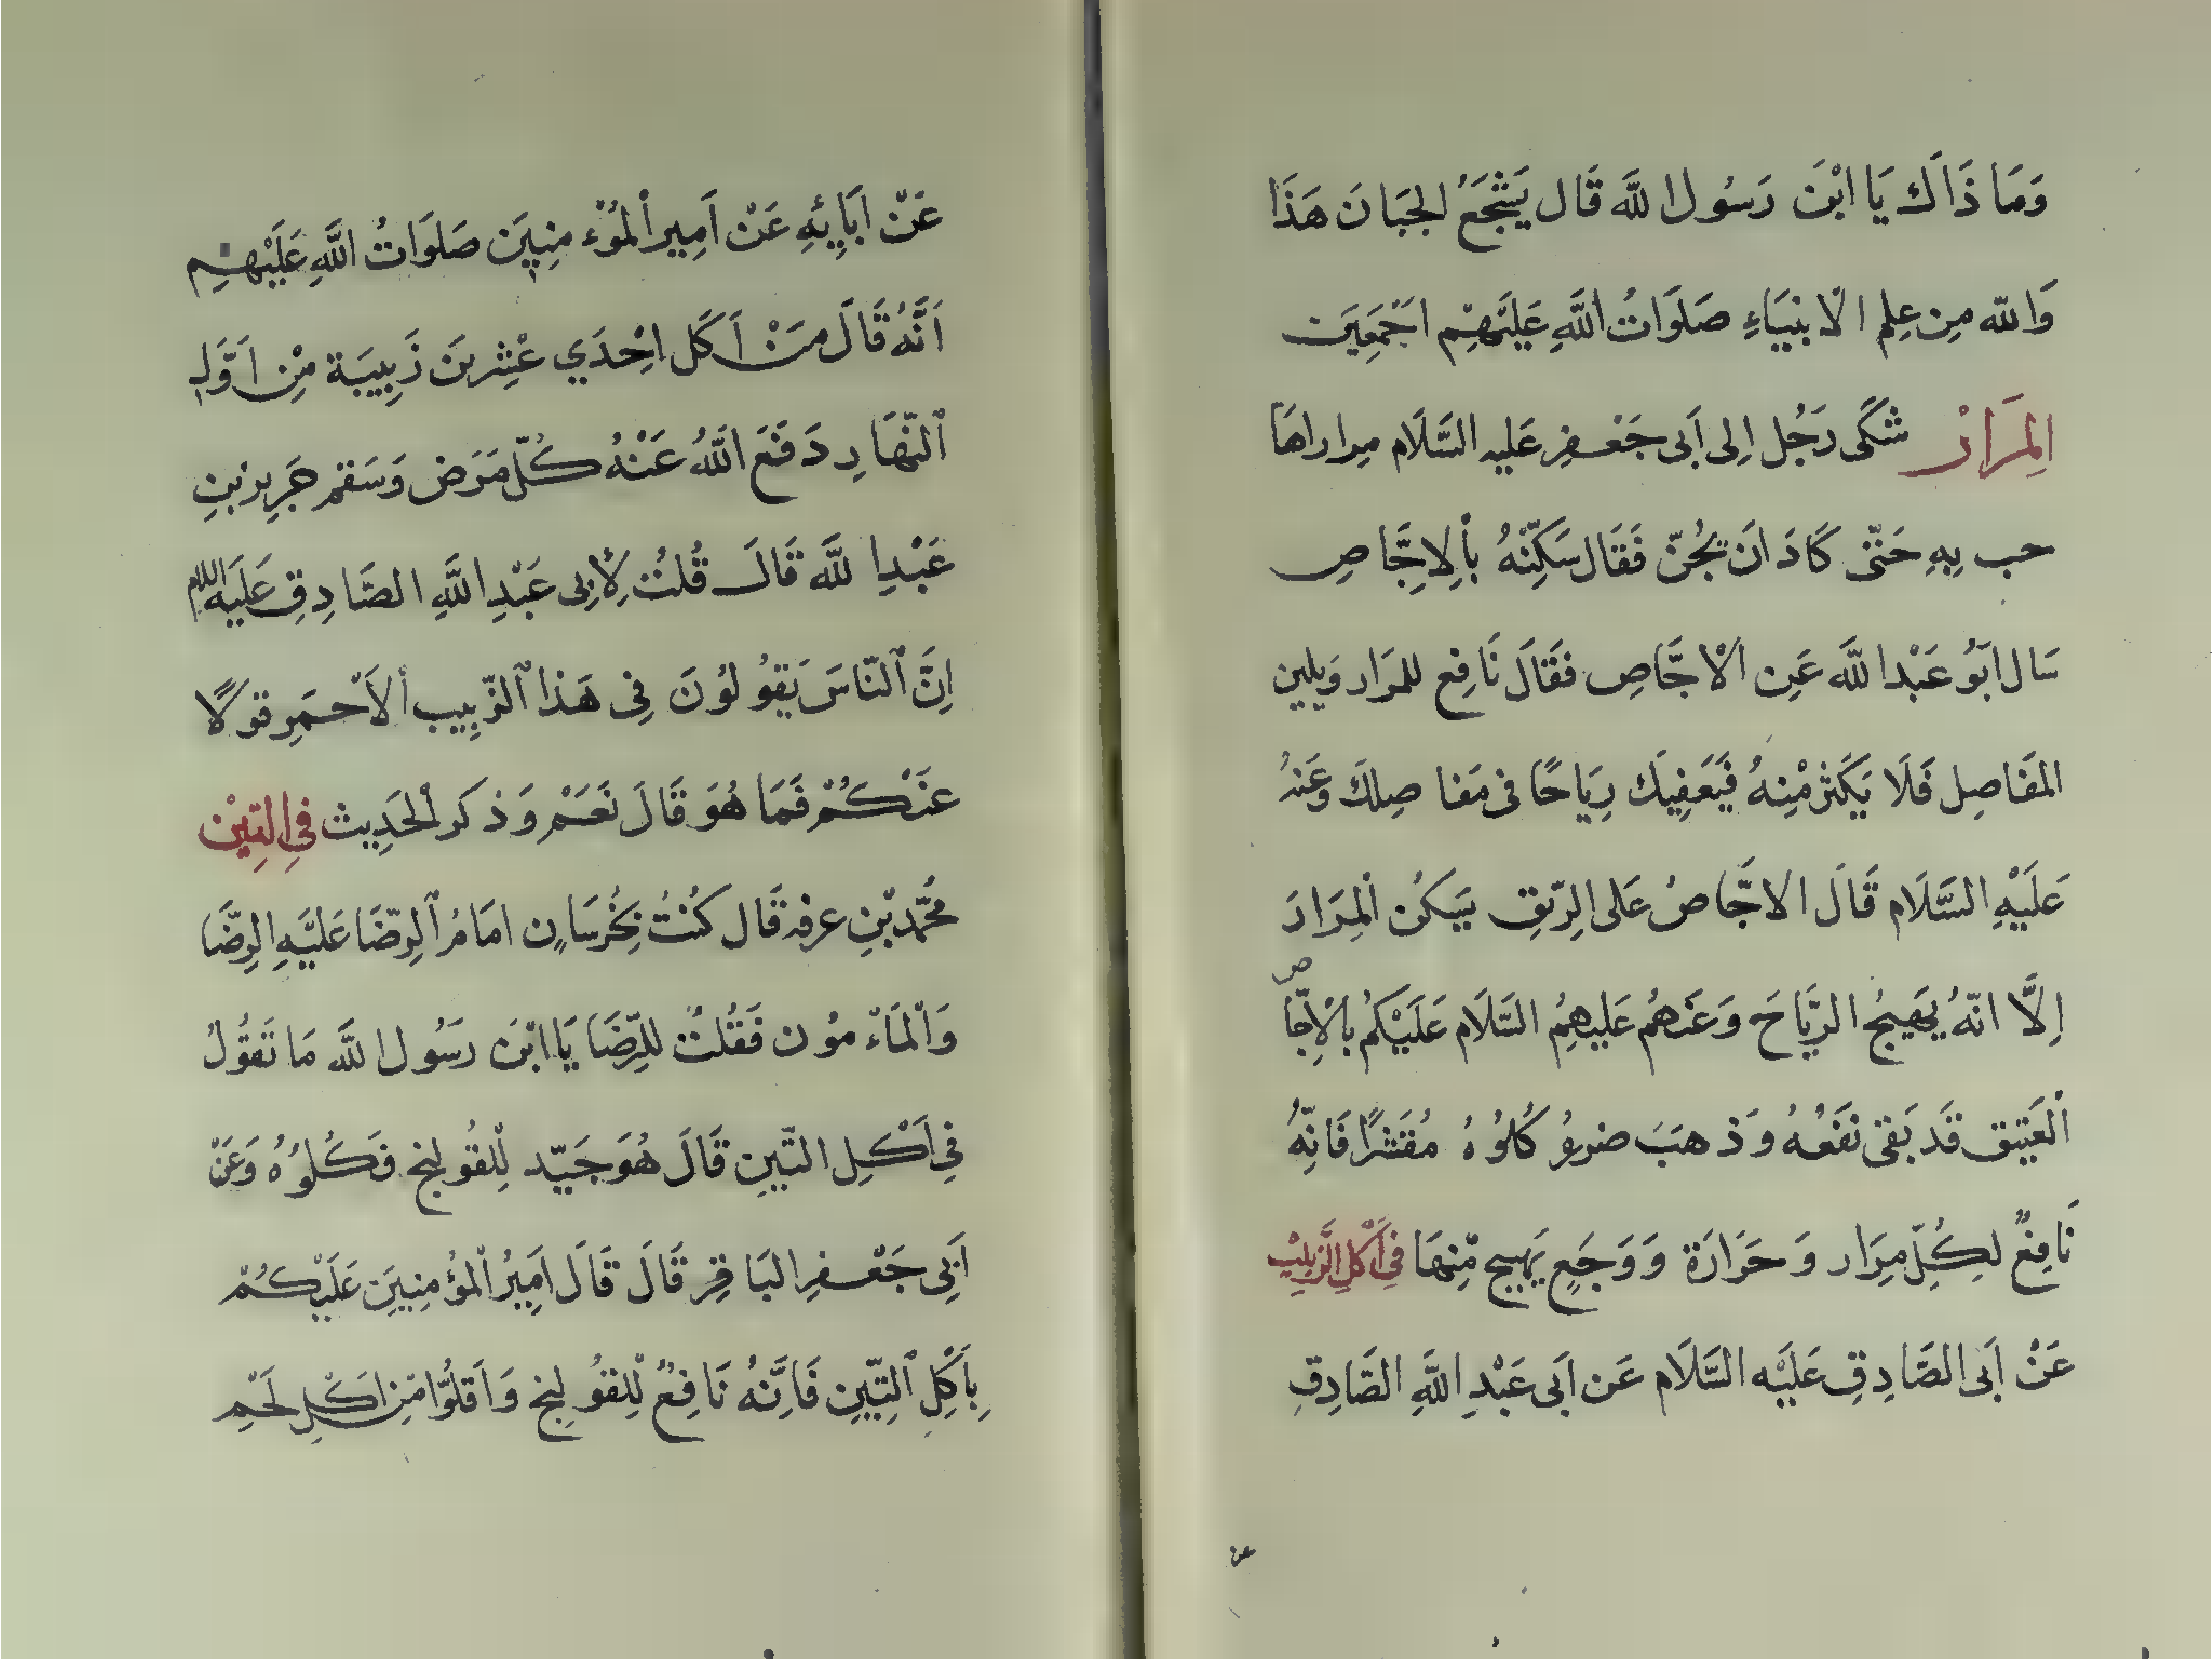 وَمَا ذَاكَ يَا ابْنَ رَسُول اللَّه قَال يَشْجَعُ الجَبَانَ هَذَا
وَاللّه مِن عِلمِ الْانبيَاءِ صَلَوَاتُ اللَّهِ عَلَيْهِمْ اجْمَعِين
المِرَارْ شَكَى رَجُل اِلى اَبى جَعْفرِ عَليه السَّلَام مِراراهَا
حب بِهِ حَتّى كَادَ انَ يُجُنّ فَقَال سَكِّنْهُ بأِلاِجَّاصِ
سَال ابَوُ عَبْد اللَّه عَن الْاجَّاصِ فَقَالَ نَافِع للمرَار وَيلين
المَفَاصِل فَلَا يَكثر مْنِهُ فَيَعَفِيَك رِيَاحًا فى مَفا صِلكَ وَعَنهُ
عَلَيْهِ السَّلَام قَالَ الاجَّاصُ عَلى الرِّيقِ يَسكُن اْلمِرَارَ
اِلَّا انّهُ يهَيجُ الرِّيَاحَ وَعَنهُم عَليهِمُ السَّلَام عَلَيْكُم بالْاِجّاص
اْلعَتِيق قَد بَقى نَفعُهُ وَذهبَ ضررهُ كُلوُهُ مُقَشرًا فَانِّهُ
نَافِعٌ لكِلّ مِرَار وَحَرَارَة وَوَجَعٍ يَهِيج مّنِهَا فِي اَكْلِ الَّزبِيْبِ
عَنْ اَبى الصَّادِقِ عَلَيْه السَّلَام عَن اَبى عَبْدِ اللَّهِ الصَّادِقِ
عَنْ ابَآئِهِ عَنْ اَمِير اْلمؤْمِنِيَن صَلَوَاتُ اللَّهِ عَلَيْهِم
اَنَّهُ قَالَ مَنْ اَكَل اِحْدَي عْشِرينَ زَبِيبَة مْنِ اَوَّلِ
اْلنّهَارِ دَفَعَ اللَّهُ عَنْهُ كُلّ مَرَض وَسَقم جَرِير بْنِ
عَبْدِ اللَّه قَالَ قُلتُ لِأبِى عَبْدِ اللَّهِ الصَّادِقِ عَلَيَه السلام
اِنَّ اْلنّاسَ يَقوُلوُنَ فِى هَذا اْلزّبِيب اْلاَحمَرِ قولًا
عنَكُمْ فَمَا هُوَ قَالَ نَعَمْ وَذكَر اْلحَدِيث فِى التِيْن
مُحّمد بْنِ عرفه قَال كنُتُ بِخُرسَانِ امَامُ اْلرِضَا عَلَيْهِ الرِضَّا
وَاْلمَاءْ موُن فَقُلتُ للِرّضَا يَا ابْنَ رَسُول اللَّه مَا تَقوُلُ
فِي اَكْلِ التّيِنِ قَالَ هُوَ جَيّد لِلْقُولنِج فَكُلوُهُ وَعَنْ
اَبِى جَعْفرِ البَاقِر قَالَ قَالَ اَمِيرُ اْلمُؤمِنيِنَ عَلَيْكُمْ
بِاَكْلِ اْلتِيّنِ فَاِنَّهُ نَافِعٌ لْلِقُولِنِج وَاَقلوُّا مّنِ اَكْلِ لَحْمِ
عن